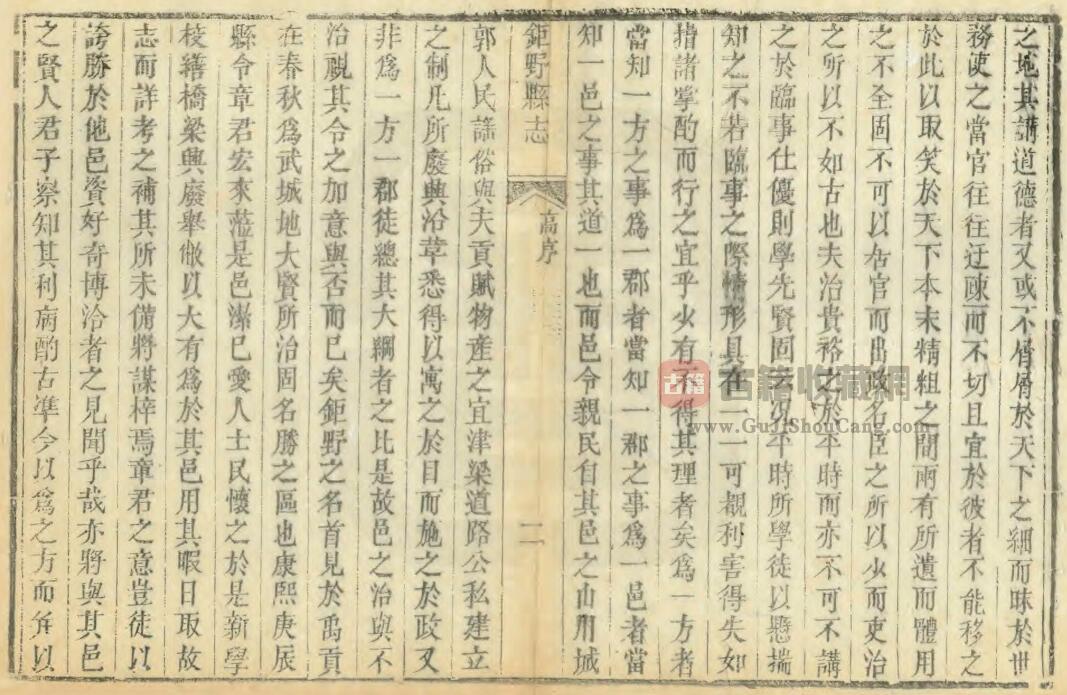 之地其講道德者又或不屑屑於天下之細而昧於世
務使之當官往往迂疎而不切且宜於彼者不能移之
於此以取笑於天下本末精粗之間兩有所遺而體用
之不全固不可以居官而出政名臣之所以少而吏治
之所以不如古也夫治貴裕之於平時而亦不可不講
之於臨事仕優則學先賢固云况平時所學徒以懸揣
知之不若臨事之際情形具在一一可觀利害得失如
指諸掌酌而行之宜乎少有不得其理者矣爲一方者
當知一方之事爲一郡者當知一郡之事爲一邑者當
知一邑之事其道一也而邑令親民自其邑之山川城
鉅野縣志
高序
二
郭人民謡俗與夫貢賦物產之宜津梁道路公私建立
之制凡所廢興沿革悉得以寓之於目而施之於政又
非爲一方一郡徒總其大綱者之比是故邑之治與不
治視其令之加意與否而已矣鉅野之名首見於禹貢
在春秋爲武城地大賢所治固名勝之區也康熙庚辰
縣令章君宏來蒞是邑潔己愛人士民懷之於是新學
校繕橋梁興廢舉墜以大有爲於其邑用其暇日取故
志而詳考之補其所未備將謀梓焉章君之意豈徒以
誇勝於他邑資好奇博洽者之見聞乎哉亦將與其邑
之賢人君子察知其利病酌古準今以爲之方而算以
古籍
古籍收藏網
www.GuJiShouCang.com